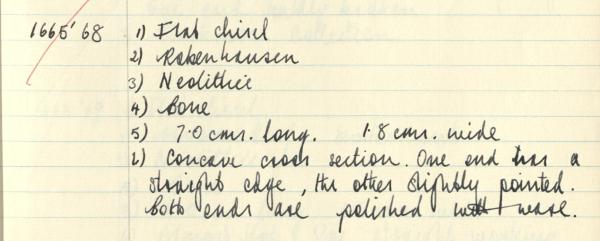 1665'68 1) Flat chisel
2) Robenhausen
3) Neolithic
4) bone
5) 7.0 cms. long. 1.8 cms. wide
2) Concave cross section. One end has a
straight edge, the other slightly pointed.
Both ends are polished with wear.